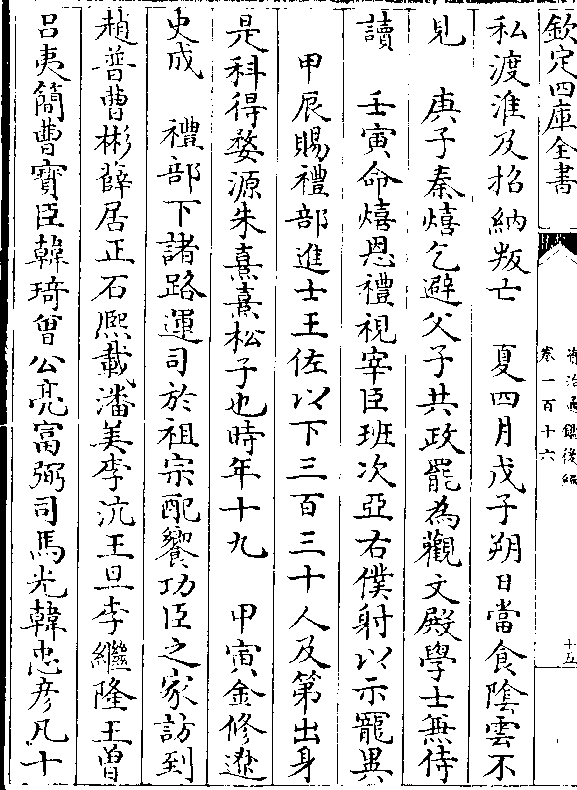 欽定四庫全書
資治通鑑後編
卷一百十六
十五
私渡淮及招納叛亡　夏四月戊子朔日當食陰雲不
見　庚子秦熺乞避父子共政罷為觀文殿學士兼侍
讀　壬寅命熺恩禮視宰臣班次亞右僕射以示寵異
甲辰賜禮部進士王佐以下三百三十人及第出身
是科得婺源朱熹熹松子也時年十九　甲寅金修遼
史成　禮部下諸路運司於祖宗配饗功臣之家訪到
趙普曹彬薛居正石熙載潘美李沆王旦李繼隆王曾
呂夷簡曹寶臣韓琦曾公亮富弼司馬光韓忠彥凡十